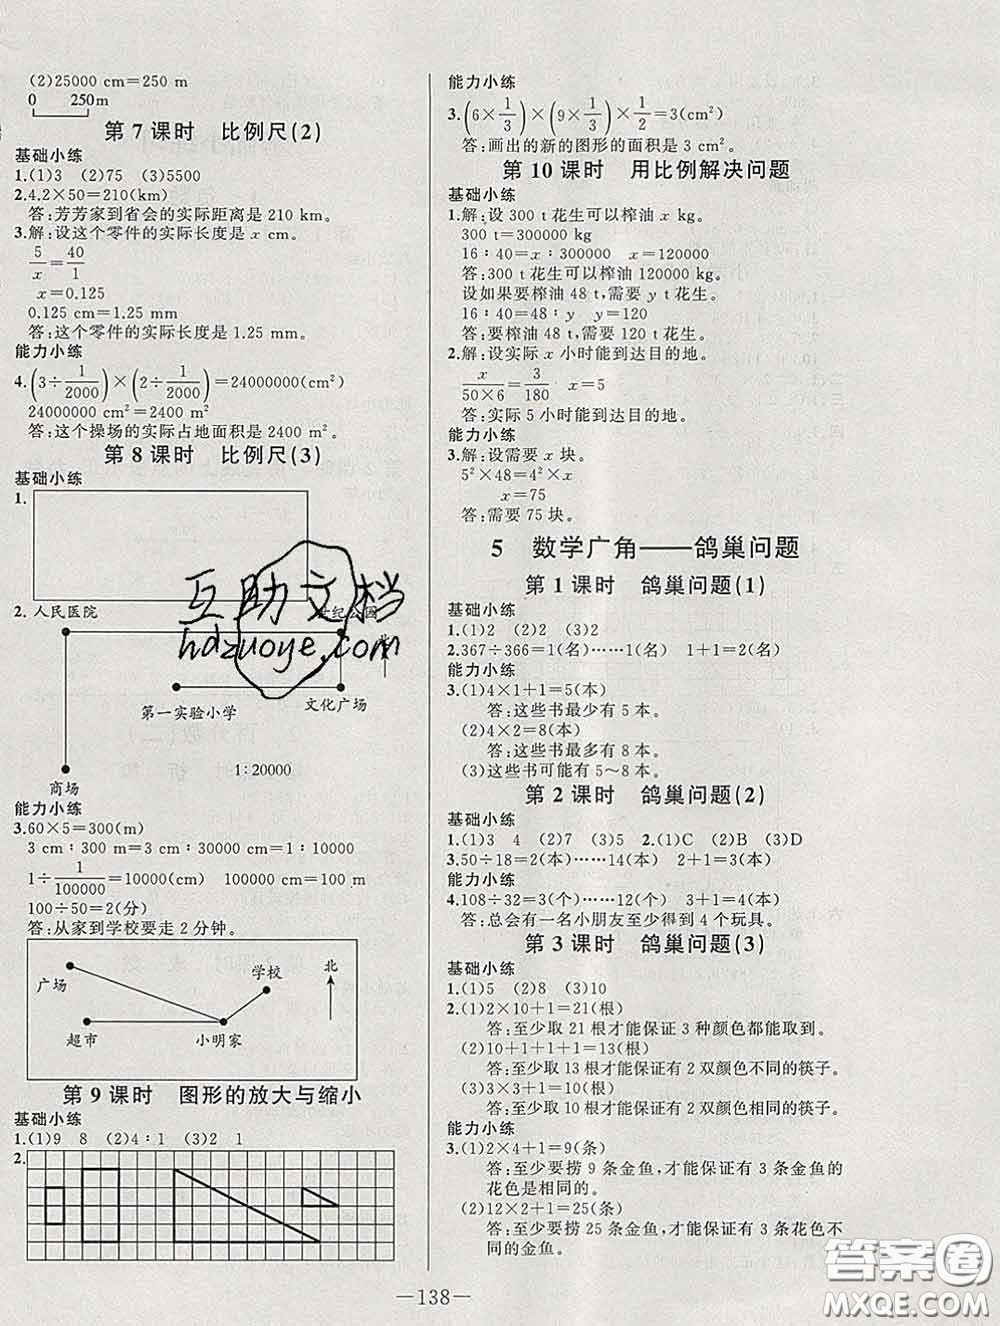 (2)25000 cm=250 m
0 250m
第 7 课时 比例尺(2)
基础小练
1.(1)3 (2)75 (3)5500
2.4.2×50=210(km)
答:芳芳家到省会的实际距离是 210 km.
3.解:设这个零件的实际长度是 x cm。
5/x=40/1
x=0.125
0.125 cm=1.25 mm
答:这个零件的实际长度是 1.25 mm.
能力小练
4.(3÷1/2000)×(2÷1/2000)=24000000(cm²)
24000000 cm²=2400 m²
答:这个操场的实际占地面积是 2400 m².
第 8 课时 比例尺(3)
基础小练
1.
2.人民医院 世纪公园
北
第一实验小学 文化广场
商场 1∶20000
能力小练
3.60×5=300(m)
3 cm∶300 m=3 cm∶30000 cm=1∶10000
1÷1/100000=10000(cm) 10000cm=100m
100÷50=2(分)
答:从家到学校要走 2 分钟。
广场 学校 北
超市 小明家
第 9 课时 图形的放大与缩小
基础小练
1.(1)9 8 (2)4∶1 (3)2 1
2.
能力小练
3.(6×1/3)×(9×1/3)×1/2=3(cm²)
答:画出的新的图形的面积是 3 cm²。
第 10 课时 用比例解决问题
基础小练
1.解:设 300 t 花生可以榨油 x kg.
300 t=300000 kg
16∶40=x∶300000 x=120000
答:300 t 花生可以榨油 120000 kg。
设如果要榨油 48 t,需要 y t 花生。
16∶40=48∶y y=120
答:要榨油 48 t,需要 120 t 花生。
2.解:设实际 x 小时能到达目的地。
x/50×6=3/180 x=5
答:实际 5 小时能到达目的地。
能力小练
3.解:设需要 x 块。
5²×48=4²×x
x=75
答:需要 75 块。
5 数学广角——鸽巢问题
第 1 课时 鸽巢问题(1)
基础小练
1.(1)2 (2)2 (3)2
2.367÷366=1(名)……1(名) 1+1=2(名)
能力小练
3.(1)4×1+1=5(本)
答:这些书最少有 5 本。
(2)4×2=8(本)
答:这些书最多有 8 本。
(3)这些书可能有 5~8 本。
第 2 课时 鸽巢问题(2)
基础小练
1.(1)3 4 (2)7 (3)5 2.(1)C (2)B (3)D
3.50÷18=2(本)……14(本) 2+1=3(本)
能力小练
4.108÷32=3(个)……12(个) 3+1=4(本)
答:总会有一名小朋友至少得到 4 个玩具。
第 3 课时 鸽巢问题(3)
基础小练
1.(1)5 (2)8 (3)10
2.(1)2×10+1=21(根)
答:至少取 21 根才能保证 3 种颜色都能取到。
(2)10+1+1+1=13(根)
答:至少取 13 根才能保证有 2 双颜色不同的筷子。
(3)2+2+2+3+1=10(根)
答:至少取 10 根才能保证有 2 双颜色相同的筷子。
能力小练
3.(1)2×4+1=9(条)
答:至少要捞 9 条金鱼,才能保证有 3 条金鱼的
花色是相同的。
(2)12×2+1=25(条)
答:至少要捞 25 条金鱼,才能保证有 3 条花色不
同的金鱼。
—138—
互助文档
hdzuoye.com
答案圈
MXQE.COM